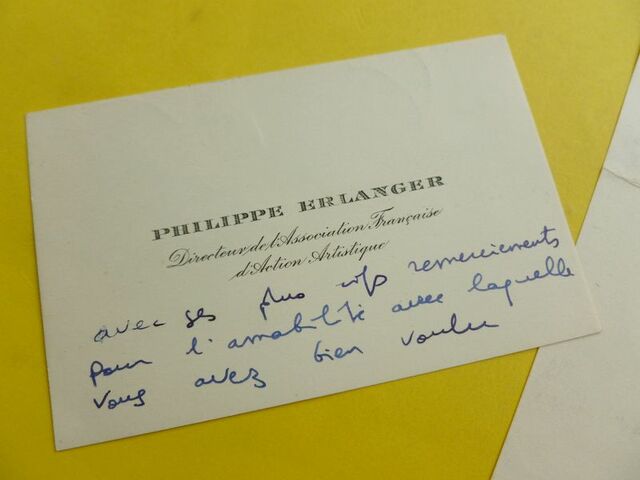 PHILIPPE ERLANGER
Directeur de l'Association Française
d'Action Artistique
avec ses plus vifs remerciements
pour l'amabilité avec laquelle
vous avez bien voulu